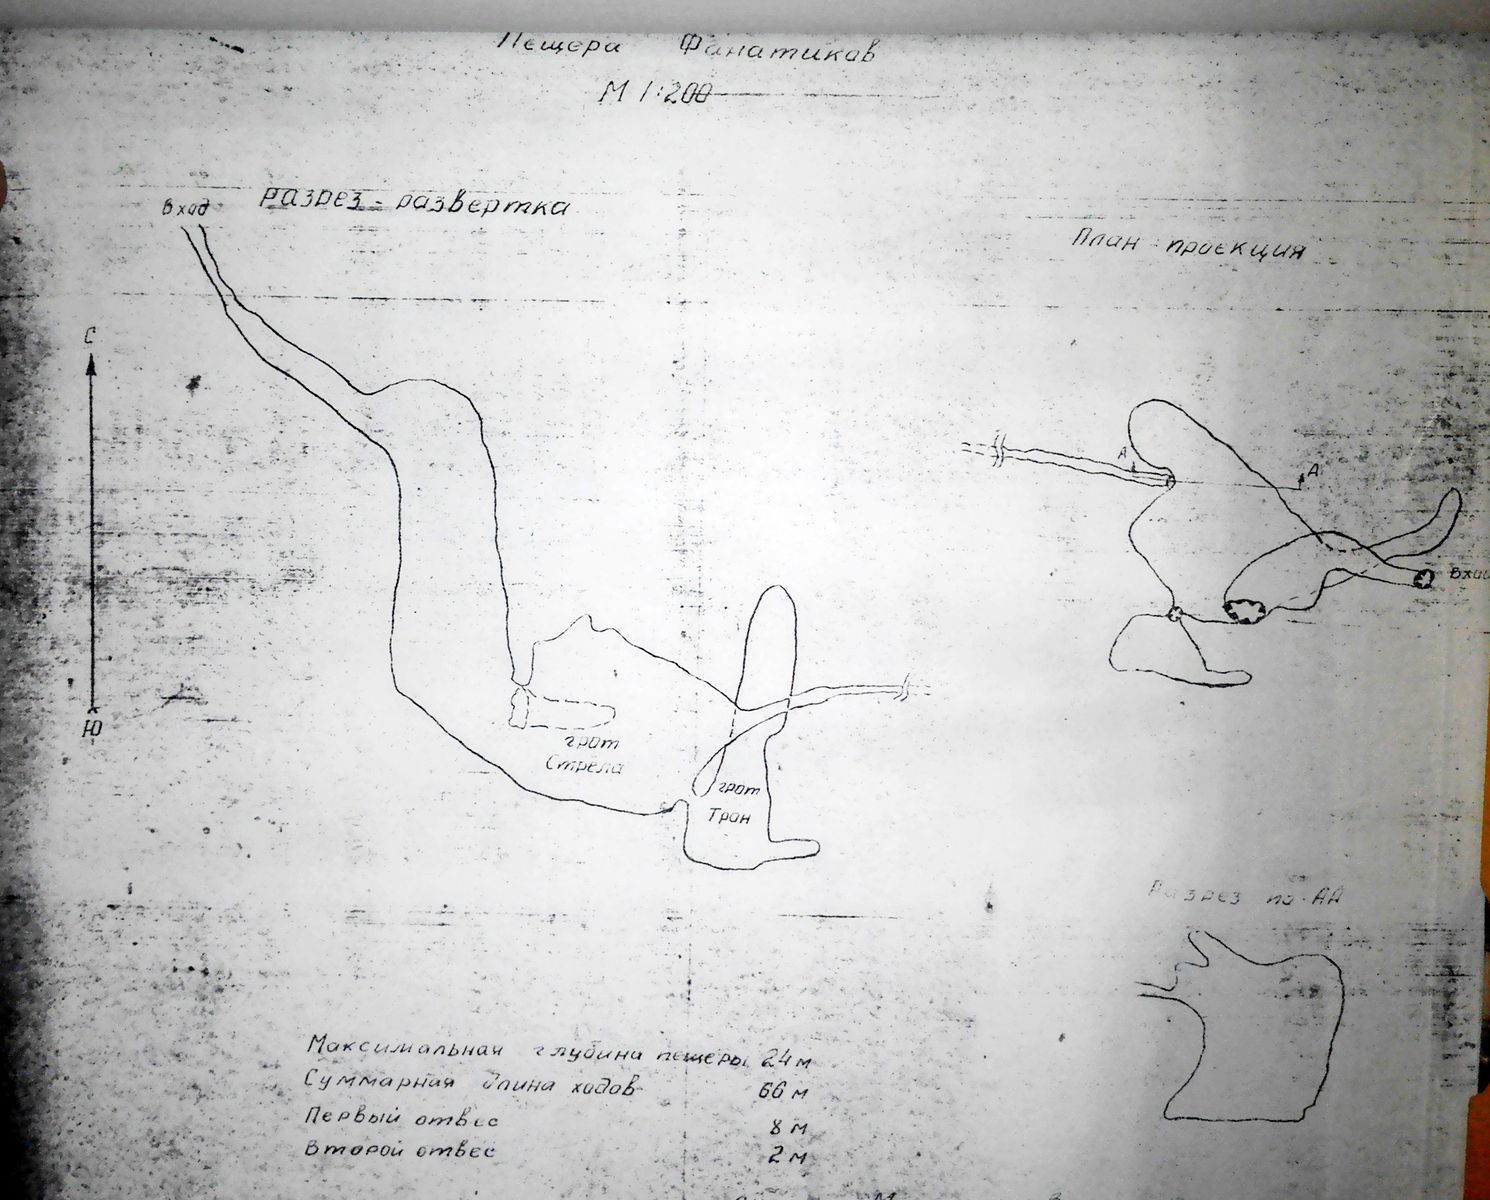 Пещера Фанатиков
М 1:200
Вход
Разрез-развертка
План-проекция
С
А
А
Вход
Ю
грот
Стрела
грот
Трон
Разрез по АА
Максимальная глубина пещеры 24 м
Суммарная длина ходов 66 м
Первый отвес 8 м
Второй отвес 2 м